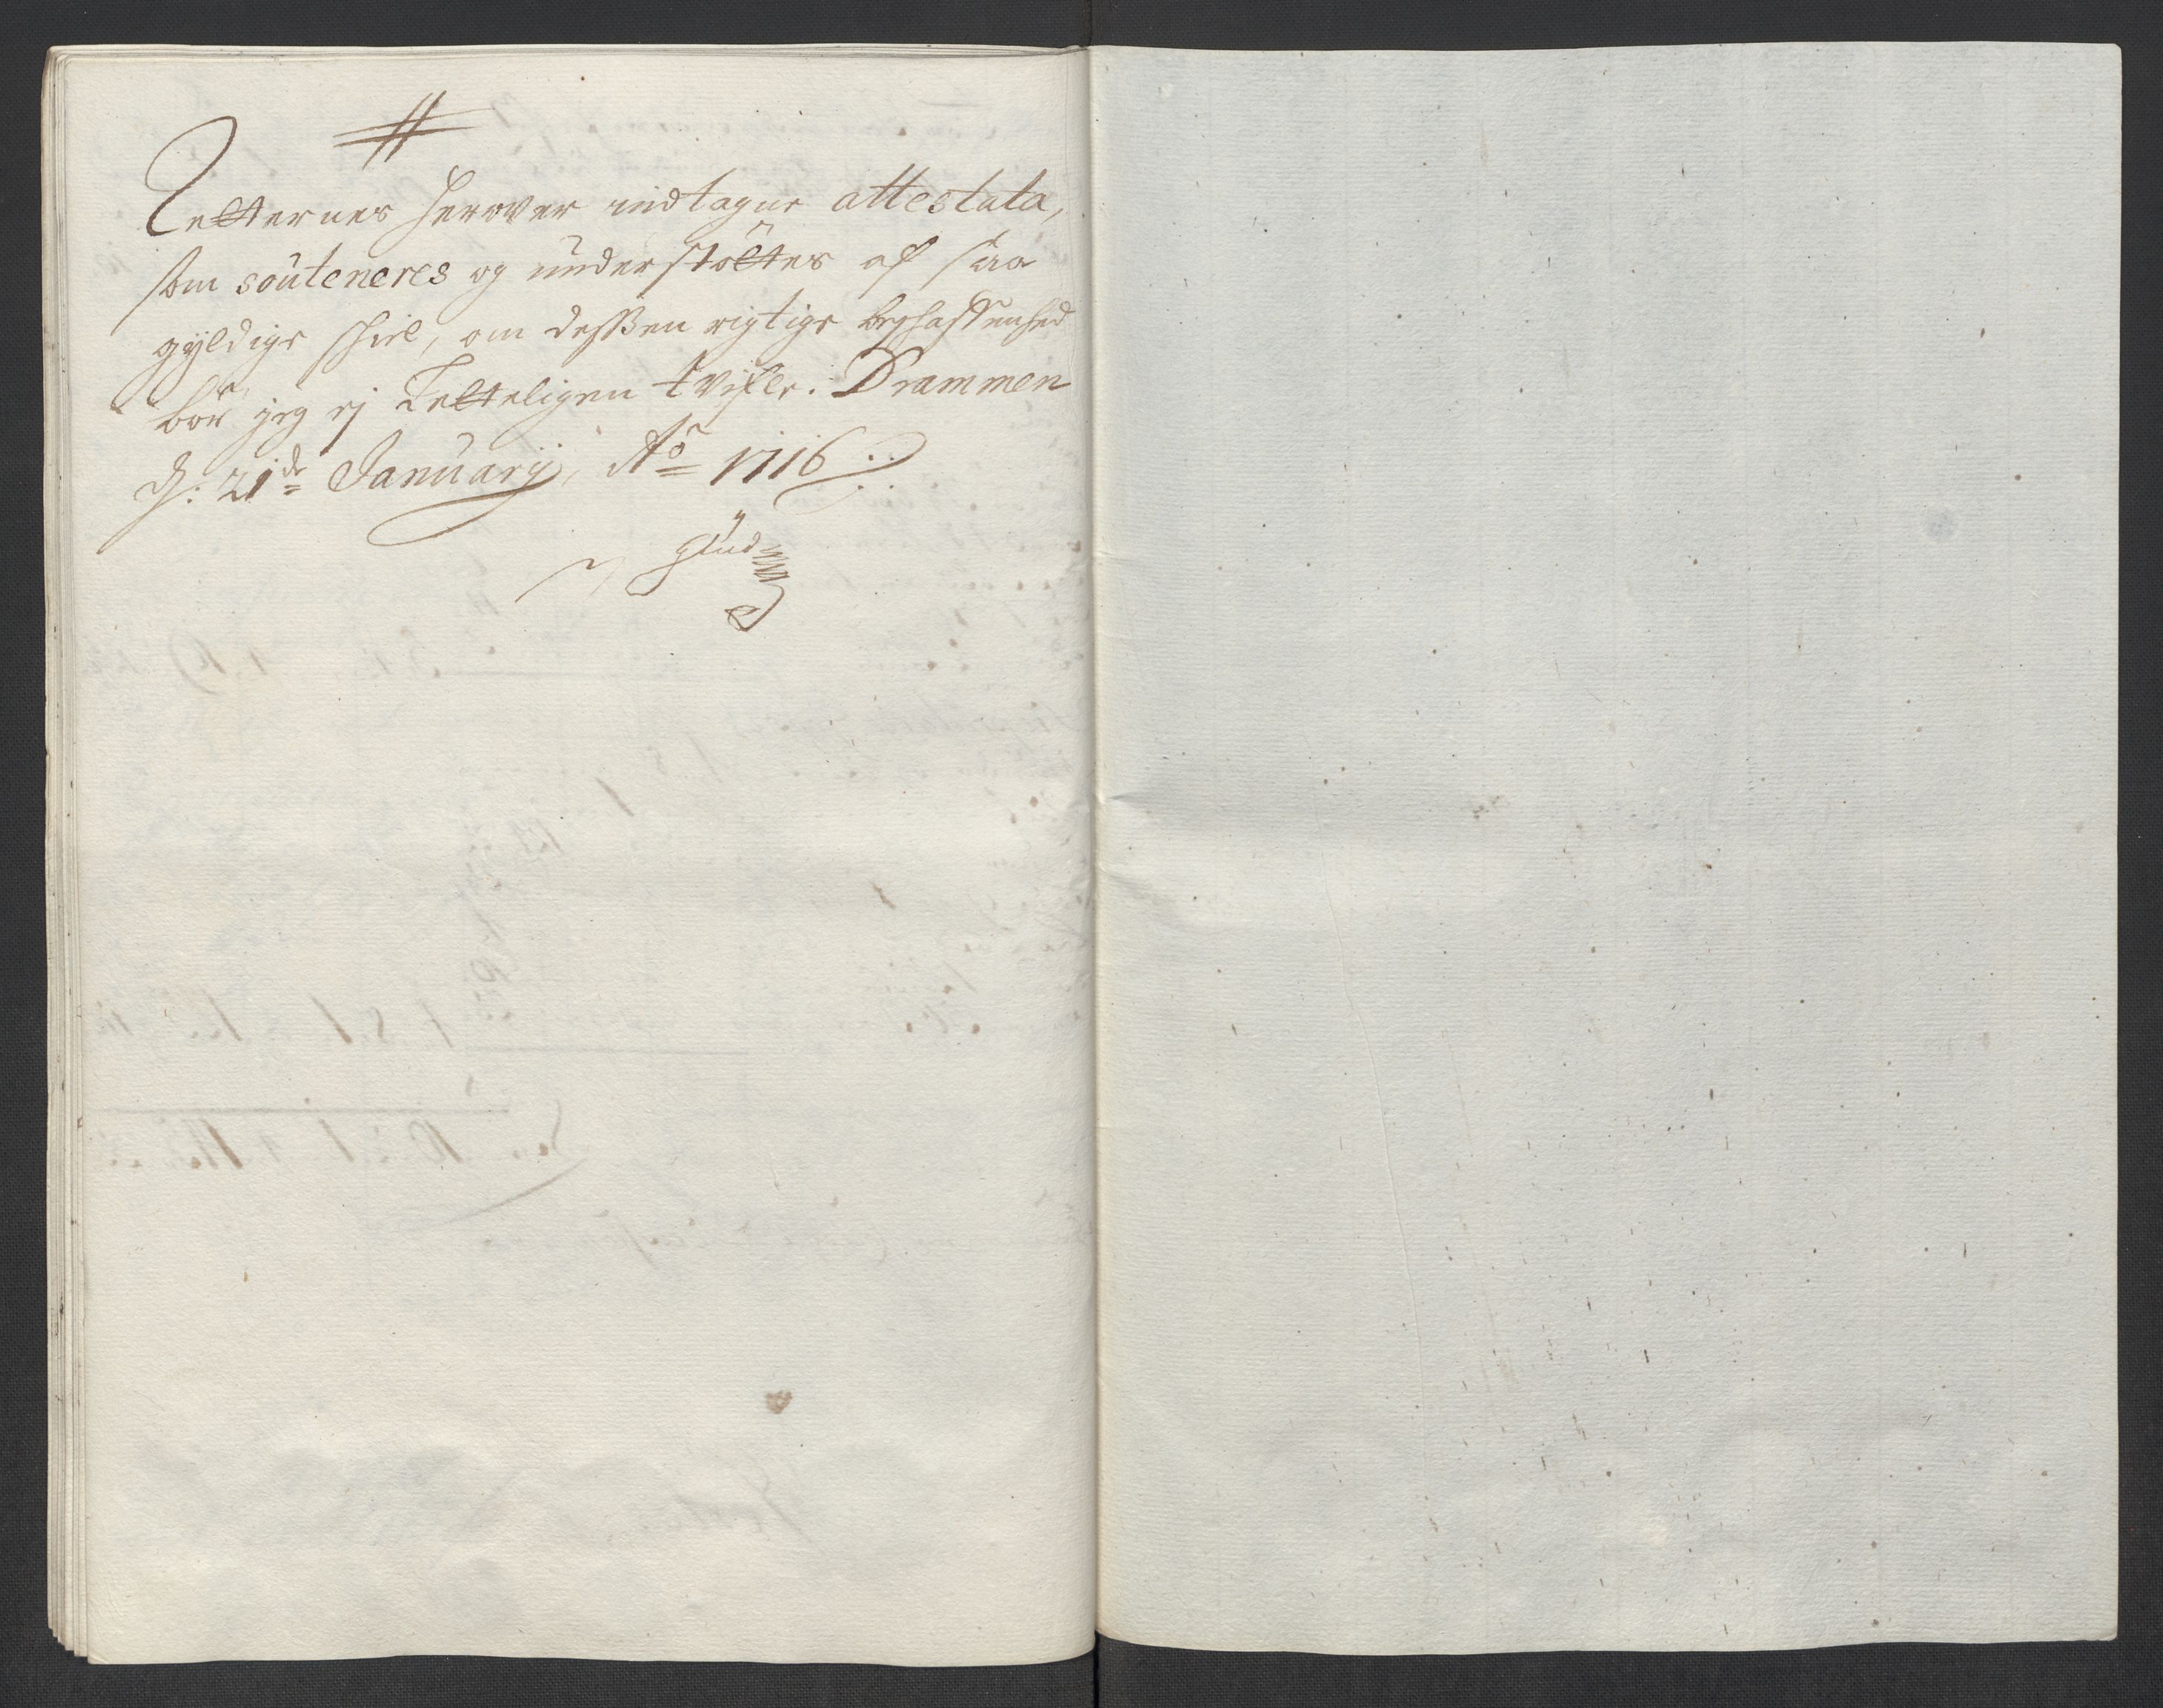 #
Retternes herover indtagne attestata,
som souteneres og understöttes af saa
gyldige skiel, om dessen rigtige beskaffenhed
bör jeg ej Retteligen tvifle. Drammen
d: 21de January, Ao 1716